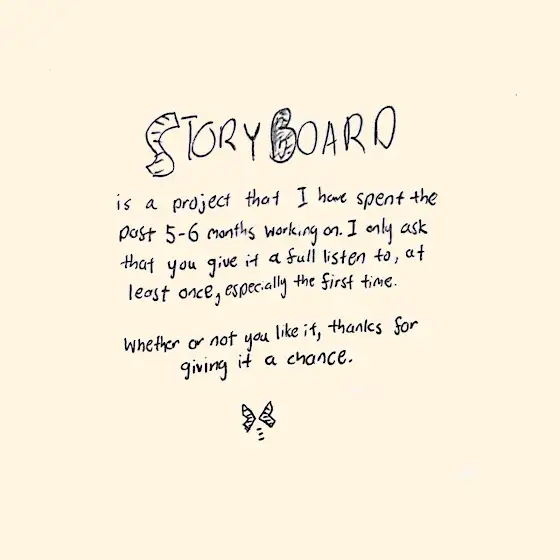 STORYBOARD
is a project that I have spent the
past 5-6 months working on. I only ask
that you give it a full listen to, at
least once, especially the first time.
Whether or not you like it, thanks for
giving it a chance.